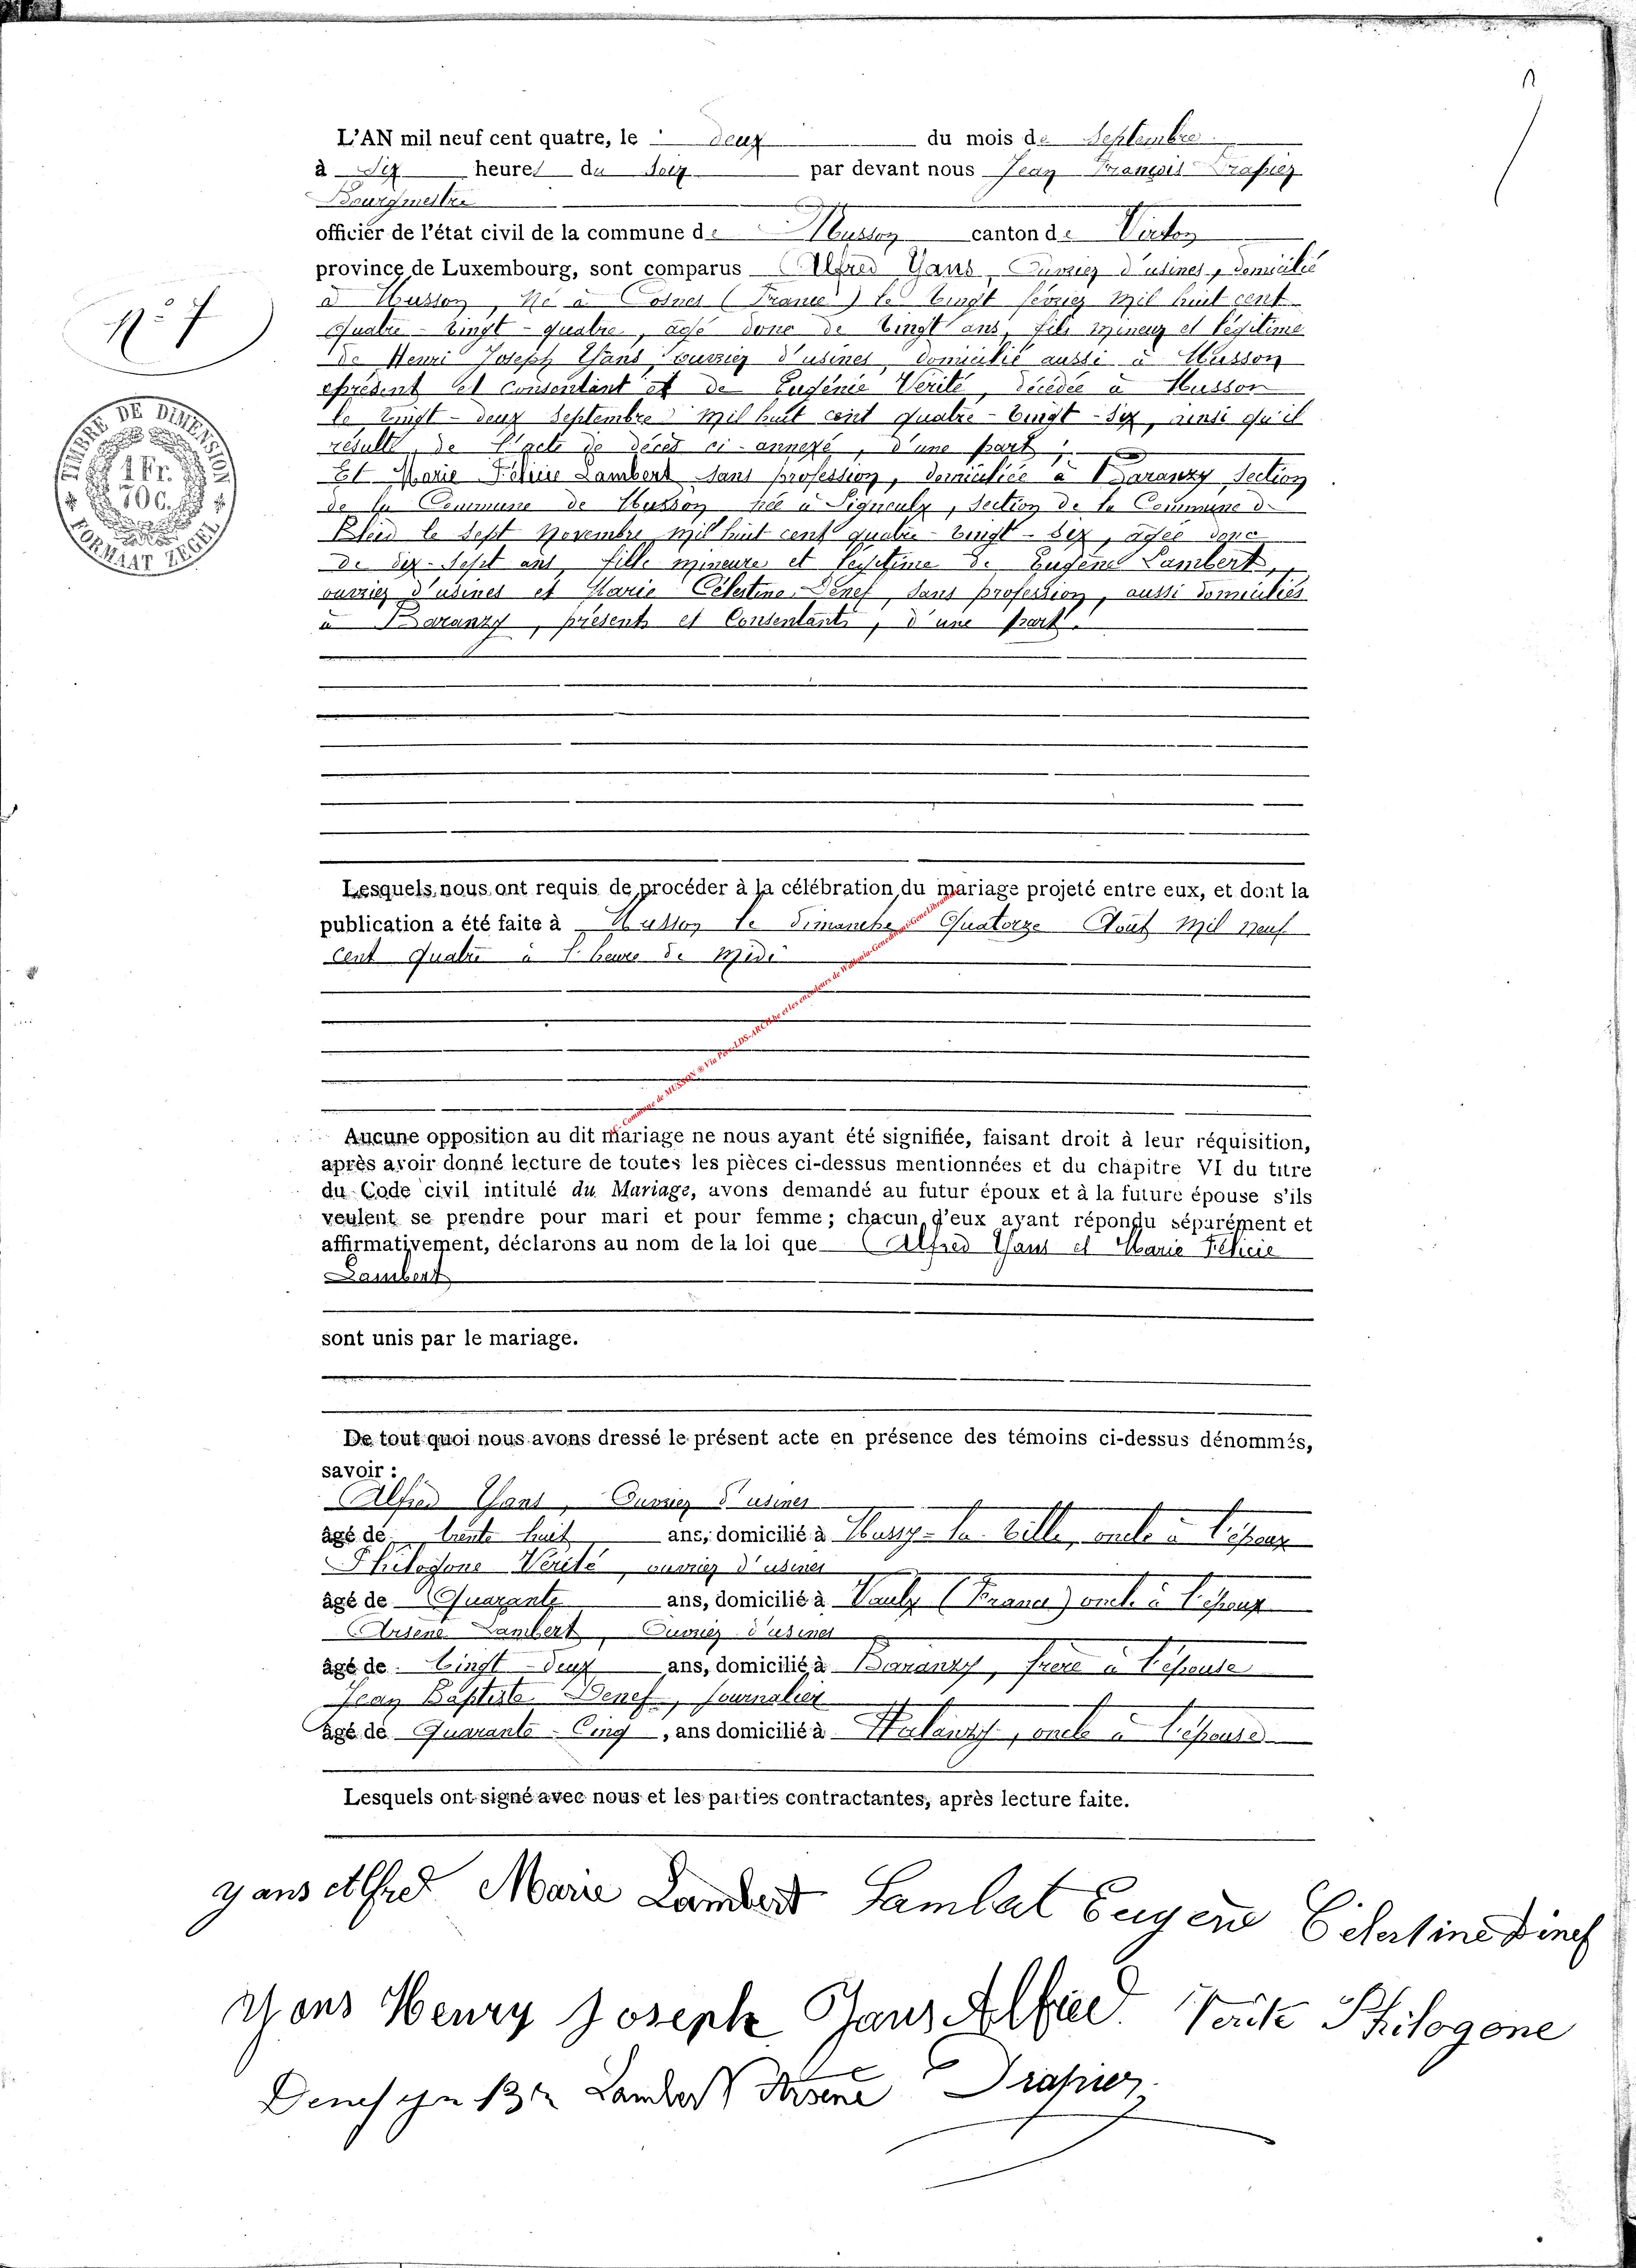 L'AN mil neuf cent quatre, le deux du mois de Septembre
à six heures du soir par devant nous Jean François Drapier
Bourgmestre
officier de l'état civil de la commune de Musson canton de Virton
province de Luxembourg, sont comparus Alfred Yans, Ouvrier d'usines, domicilié
à Musson, Né à Cosnes (France) le vingt février Mil huit cent
Quatre-vingt-quatre, agé donc de vingt ans, fils mineur et légitime
de Henri Joseph Yans, ouvrier d'usines domicilié aussi à Musson
présent et consentant et de Eugénie Vérité, décédée à Musson
le vingt-deux Septembre Mil huit cent quatre-vingt-six, ainsi qu'il
résulte de l'acte de décès ci-annexé, d'une part;
N° 7
Et Marie Félicie Lambert sans profession, domiciliée à Baranzy Section
de la Commune de Musson née à Signeulx, section de la Commune de
Bleid le sept Novembre mil huit cent quatre-vingt-six, agée donc
de dix-sept ans, fille mineure et légitime de Eugène Lambert,
ouvrier d'usines et Marie Célestine Denef, sans profession, aussi domiciliés
à Baranzy, présents et Consentants, d'une part.
TIMBRE DE DIMENSION
1 Fr.
70 C.
FORMAAT ZEGEL
Lesquels nous ont requis de procéder à la célébration du mariage projeté entre eux, et dont la
publication a été faite à Musson le Dimanche Quatorze Août Mil neuf
cent quatre à l'heure de Midi
Commune de MUSSON ® Via Perc-LDS-ARCH.be et les encodeurs de Wallonia-Genedinant-GeneLibramont
Aucune opposition au dit mariage ne nous ayant été signifiée, faisant droit à leur réquisition,
après avoir donné lecture de toutes les pièces ci-dessus mentionnées et du chapitre VI du titre
du Code civil intitulé du Mariage, avons demandé au futur époux et à la future épouse s'ils
veulent se prendre pour mari et pour femme; chacun d'eux ayant répondu séparément et
affirmativement, déclarons au nom de la loi que Alfred Yans et Marie Félicie
Lambert
sont unis par le mariage.
De tout quoi nous avons dressé le présent acte en présence des témoins ci-dessus dénommés,
savoir :
Alfred Yans, Ouvrier d'usines
agé de trente huit ans, domicilié à Mussy-la-Ville, oncle à l'époux
Philogone Vérité, ouvrier d'usines
agé de Quarante ans, domicilié à Vaulx (France) oncle à l'époux
Arsène Lambert, Ouvrier d'usines
agé de Vingt-deux ans, domicilié à Baranzy, frère à l'épouse
Jean Baptiste Denef, Journalier
agé de Quarante-Cinq, ans domicilié à Halanzy, oncle à l'épouse
Lesquels ont signé avec nous et les parties contractantes, après lecture faite.
yans Alfred Marie Lambert Lambert Eugene Celestine Denef
Yans Henry Joseph Yans Alfred Verite Philogone
Denef Jn Bte Lambert Arsene Drapier